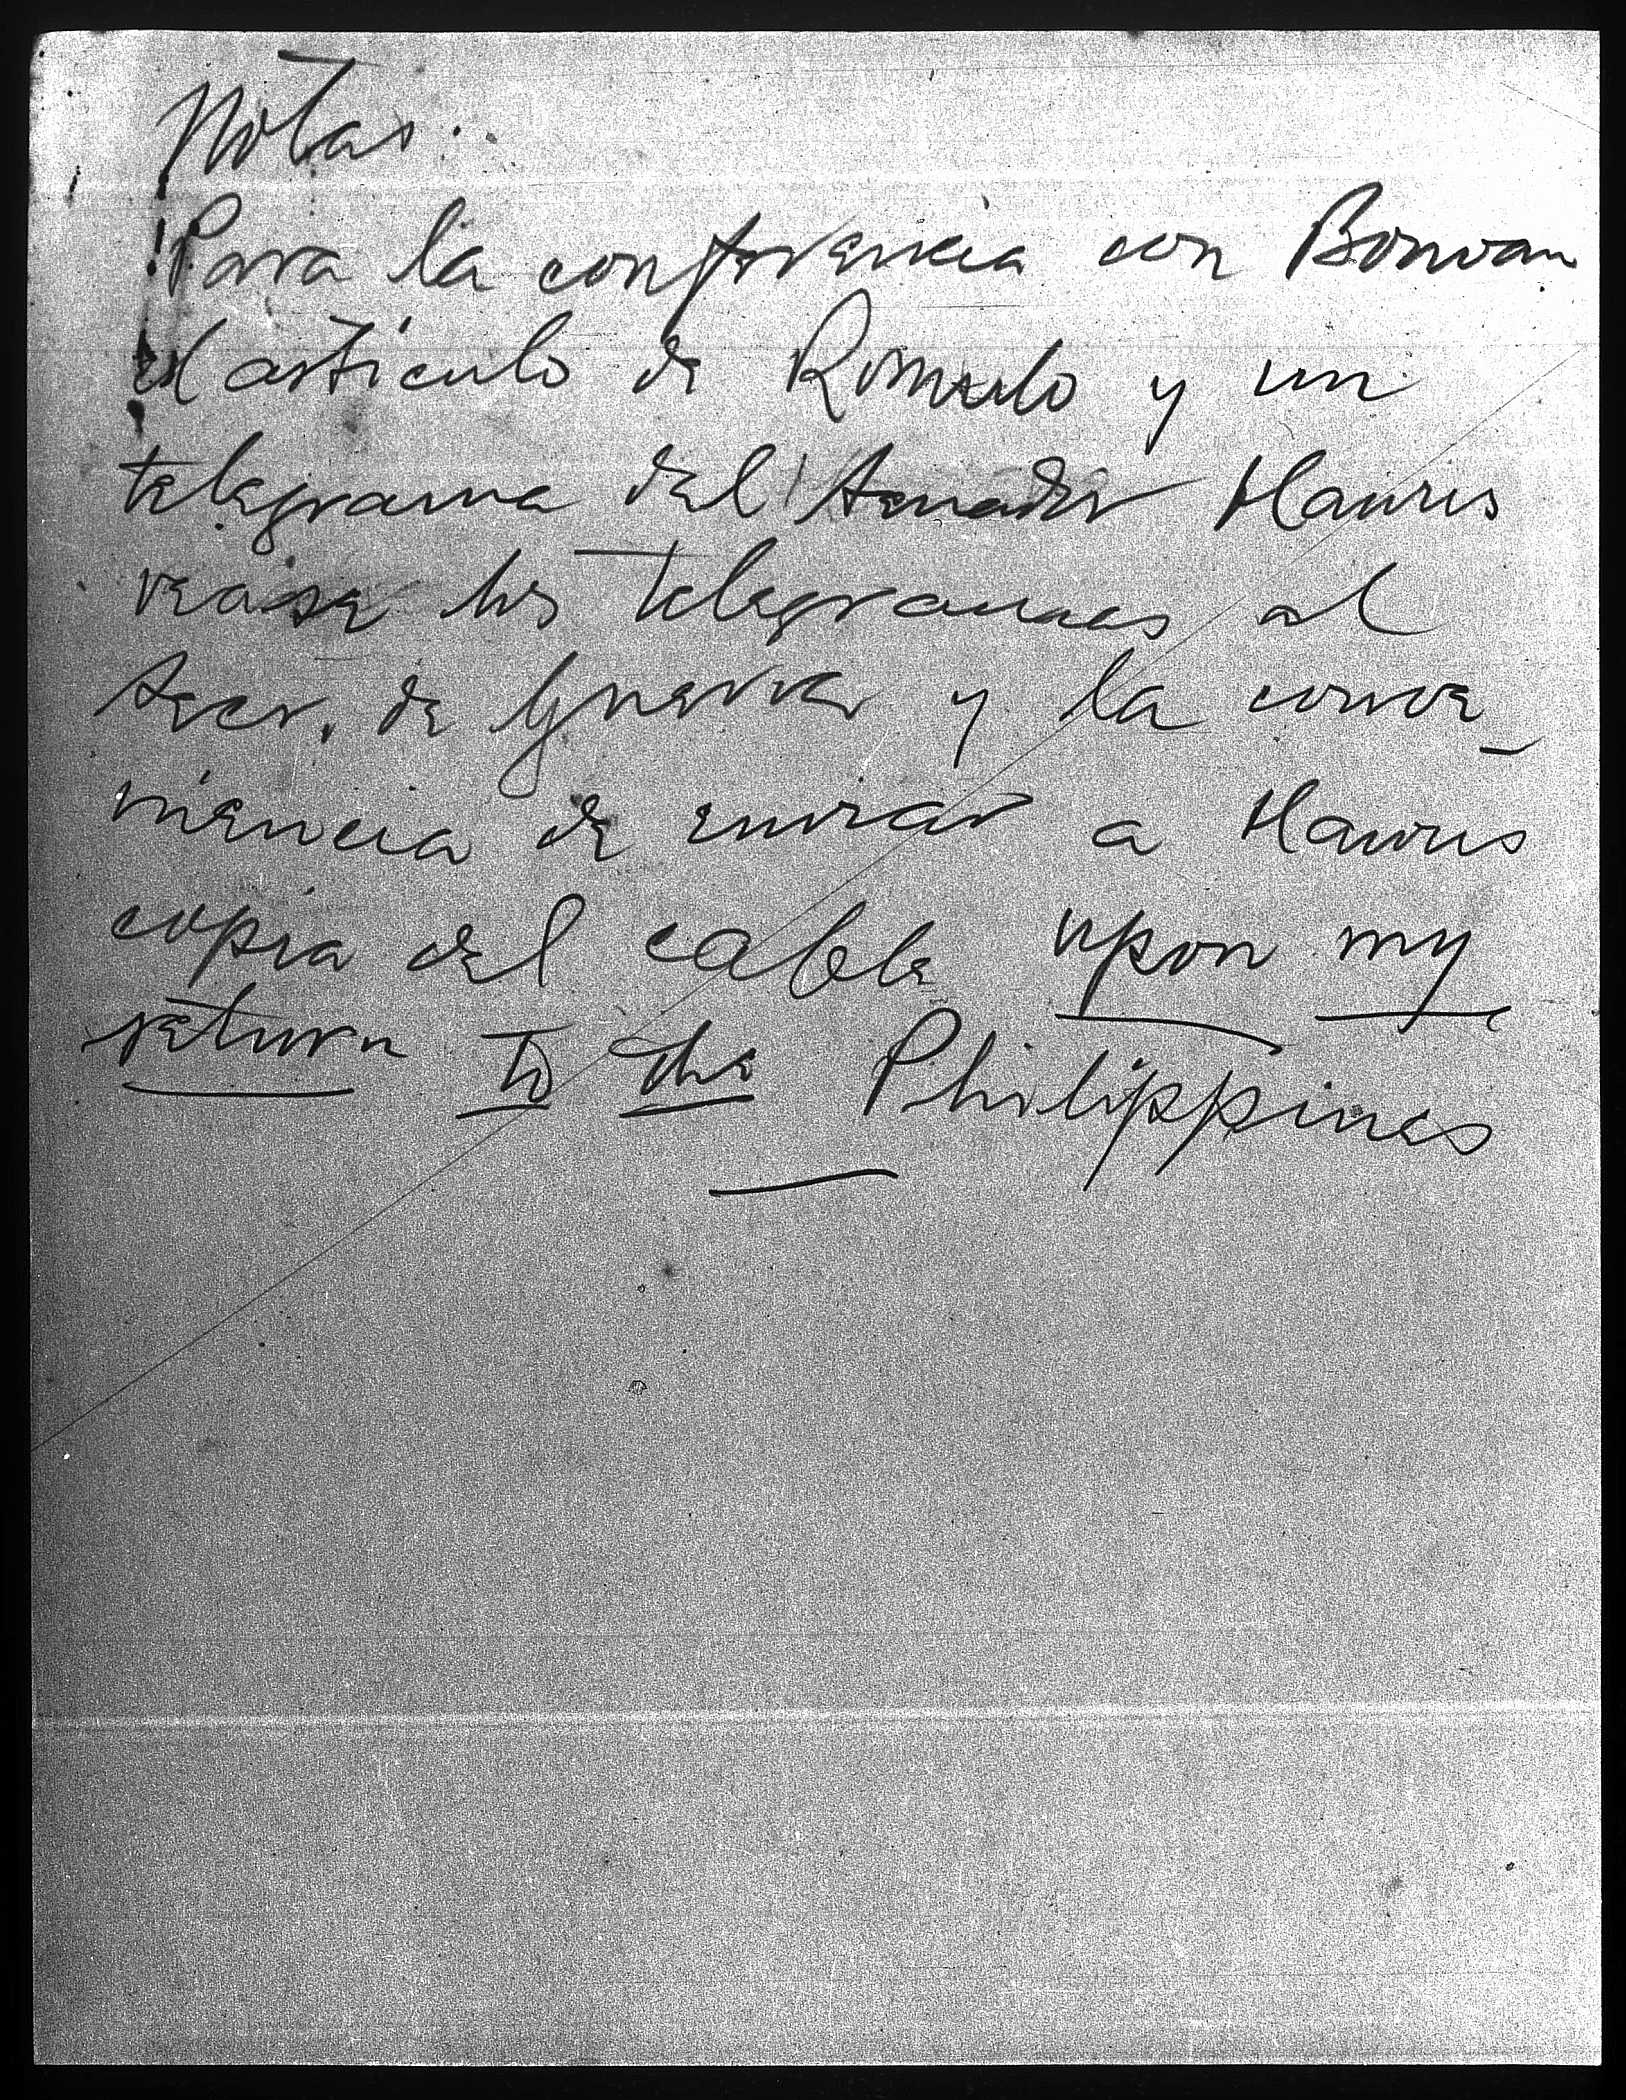 Notas.
Para la conferencia con
el articulo de Romulo y un
telegrama del Senador Hawes
vease los telegramas al
Secr. de Guerra y la conve_
niencia de enviar a Hawes
copia del cable upon my
return to the Philippines